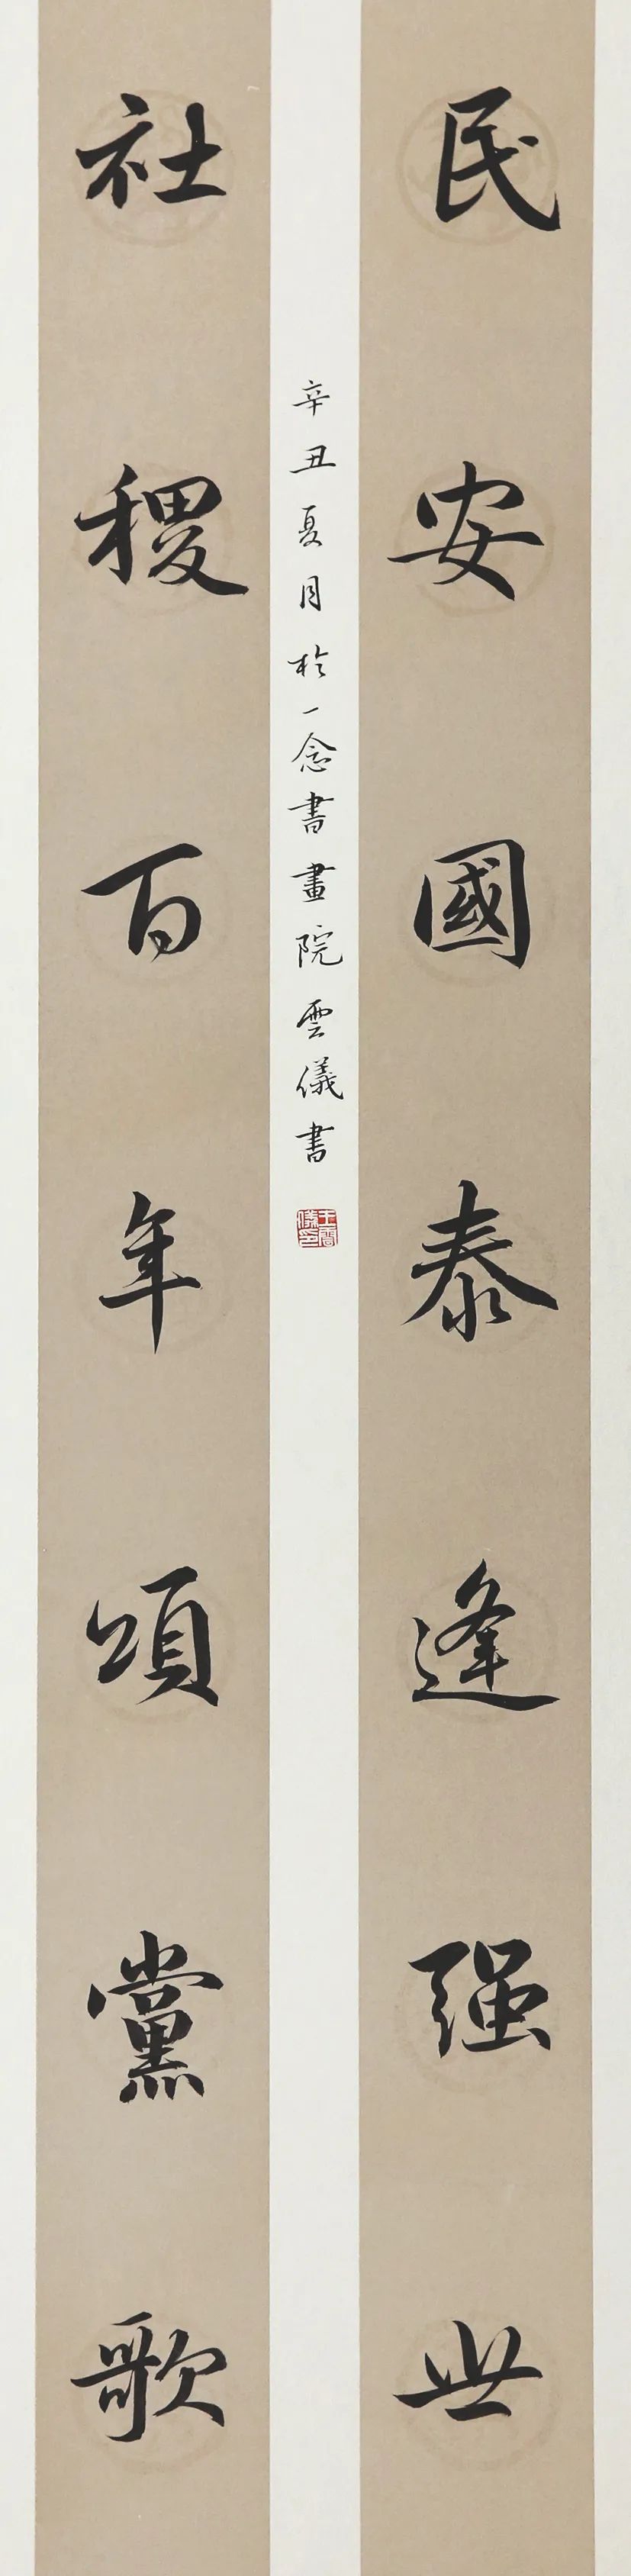 民安國泰逢强世
社稷百年頌黨歌
辛丑夏月於一念書畫院雲儀書
王雲儀印